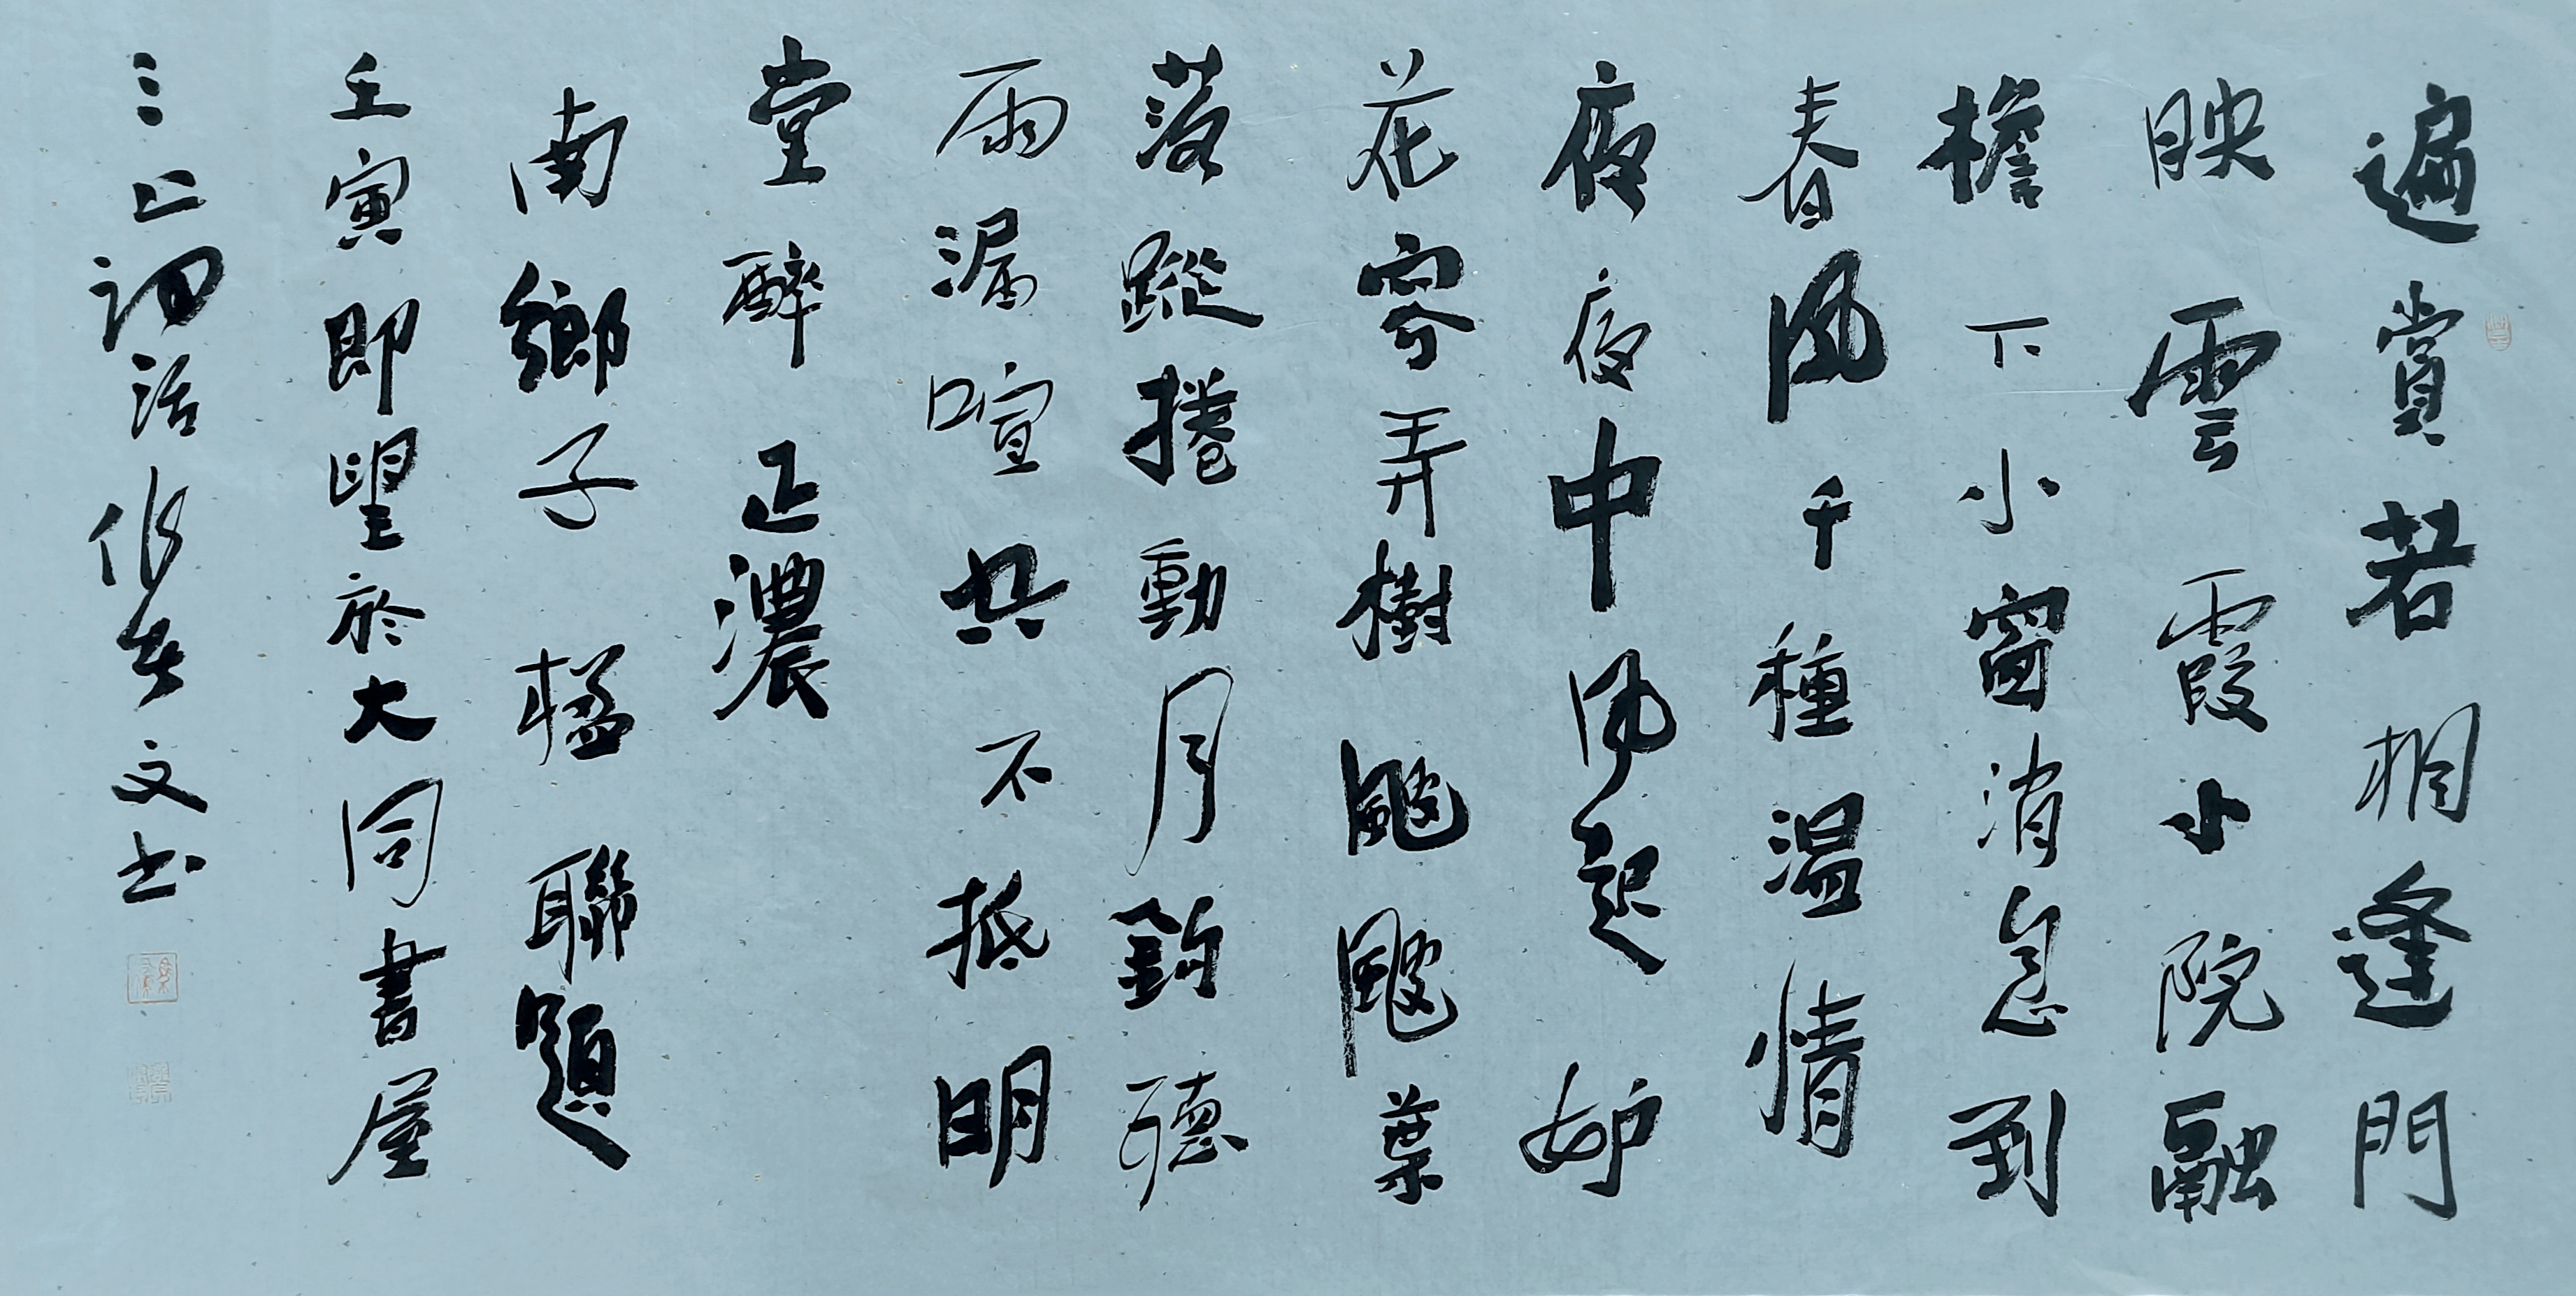 遍賞若相逢門
映雲霞小院融
檐下小窗消息到
春風千種溫情
夜夜中風起妒
花容弄樹颰颰葉
落蹤捲動月鈎聽
雨漏喧共不抵明
堂醉正濃
南鄉子楹聯題
壬寅即望於大同書屋
三上詞話文书